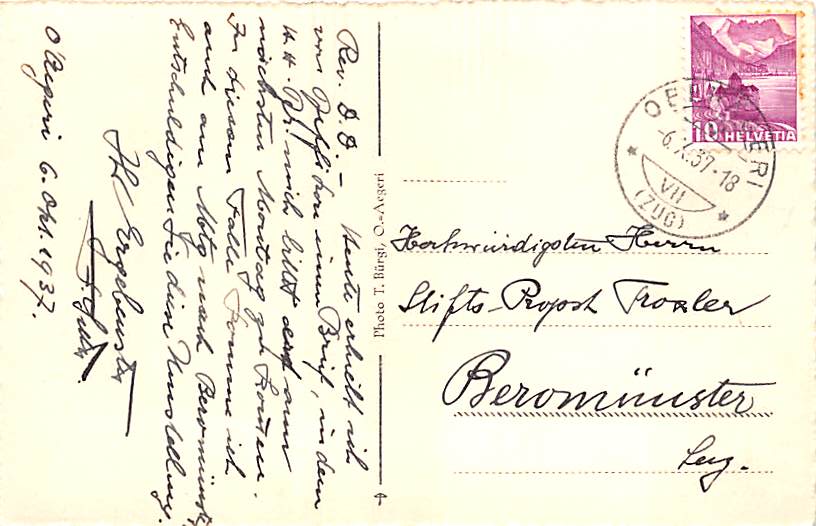 Rev. D. D. – Heute erhielt ich
von einen Brief, in dem
H.H. Pfr. mich bittet am
nächsten Montag zu kommen.
In diesem Falle komme ich
erst am Mttg nach Beromünster
Entschuldigen Sie diese Umstellung.
Ihr Ergebenster
O'Aegeri 6. Okt. 1937.
Photo T. Bürgi, O.-Aegeri
OBERAEGERI
-6.X.37-18
VII
(ZUG)
10 HELVETIA
Hochwürdigsten Herrn
Stifts-Propst Troxler
Beromünster
Luz.